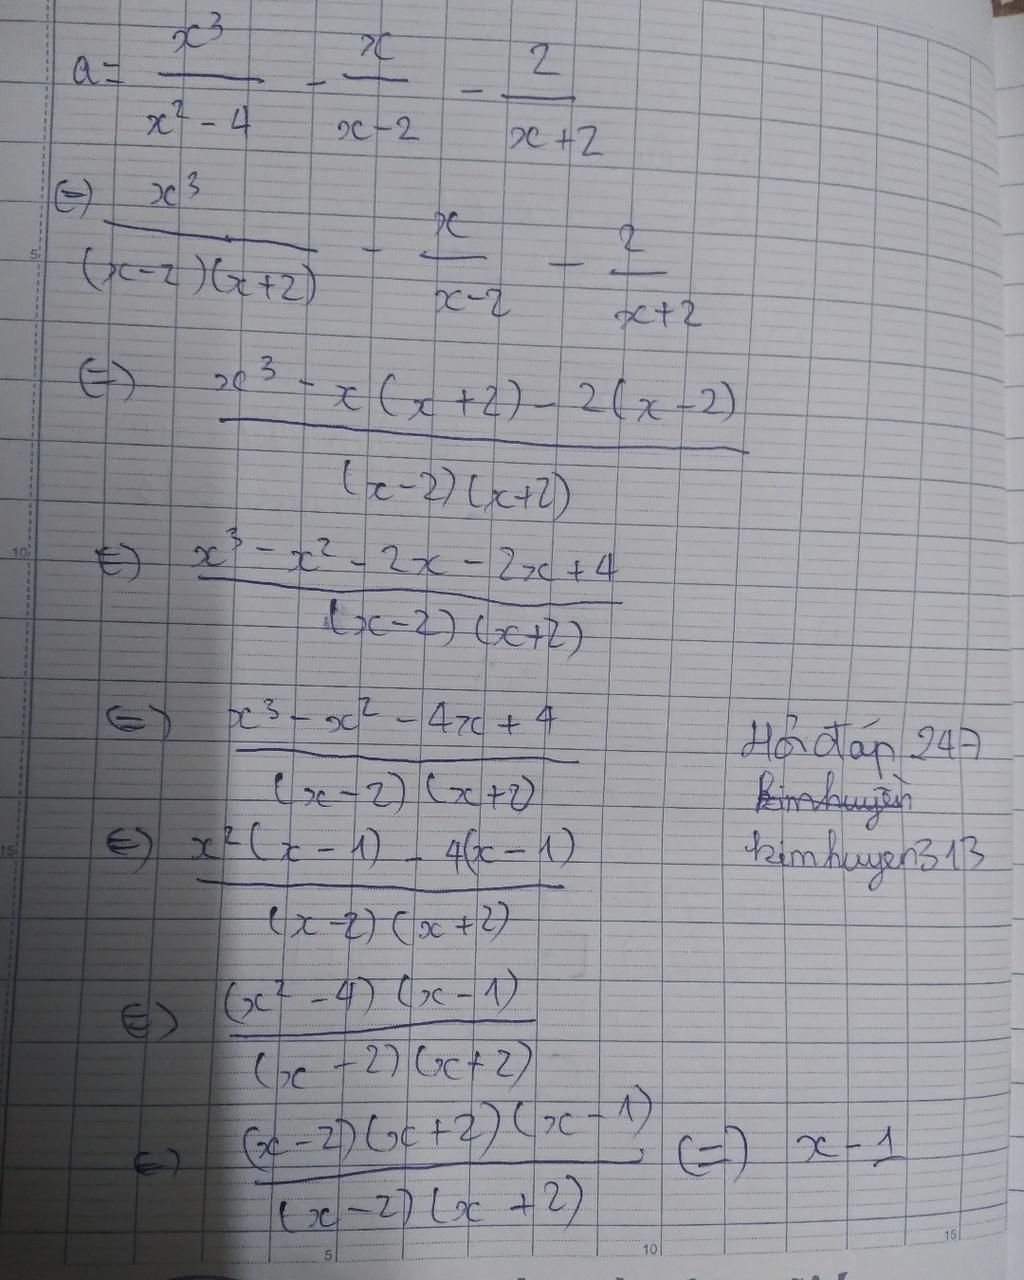 a = x³/(x² - 4) - x/(x - 2) - 2/(x + 2)
(=) x³/((x - 2)(x + 2)) - x/(x - 2) - 2/(x + 2)
(=) (x³ - x(x + 2) - 2(x - 2))/((x - 2)(x + 2))
(=) (x³ - x² - 2x - 2x + 4)/((x - 2)(x + 2))
(=) (x³ - x² - 4x + 4)/((x - 2)(x + 2))
Hỏi đáp 247
kimhuyền
(=) (x²(x - 1) - 4(x - 1))/((x - 2)(x + 2))
kimhuyen313
(=) ((x² - 4)(x - 1))/((x - 2)(x + 2))
(=) ((x - 2)(x + 2)(x - 1))/((x - 2)(x + 2)) (=) x - 1
5
10
15
5
10
15